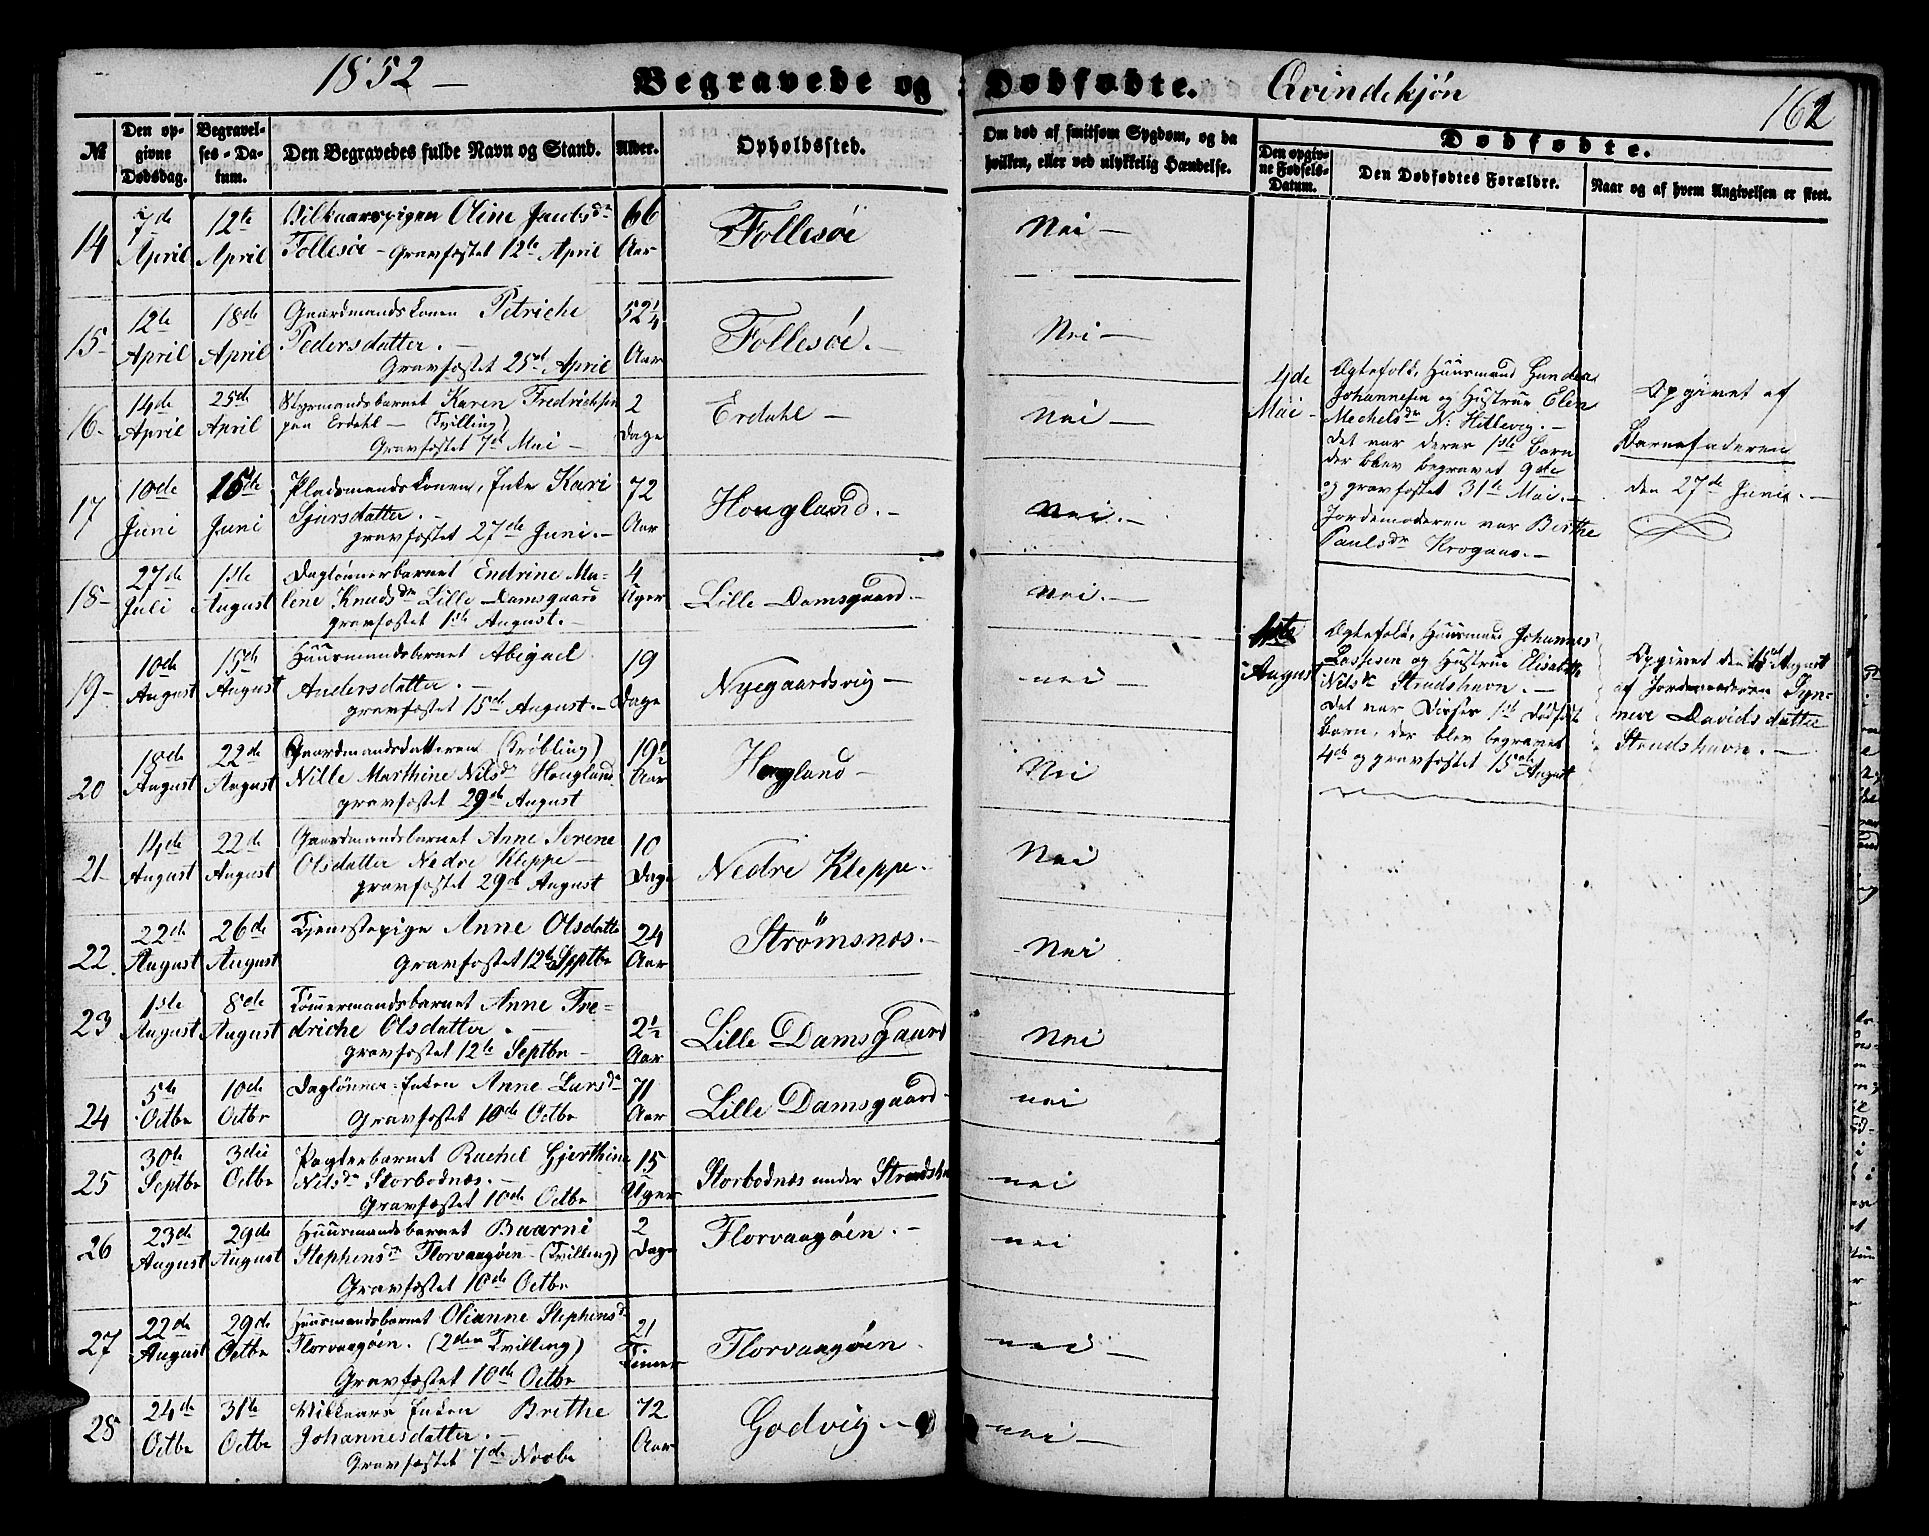 1852 –
Begravede og Dødfødte. Qvindekjøn
162
№
Den opgivne Dødsdag.
Begravelses-Datum.
Den Begravedes fulde Navn og Stand.
Alder.
Opholdssted.
Om død af smitsom Sygdom, og da hvilken, eller ved ulykkelig Hændelse.
Dødfødte.
Den opgivne Fødsels-Datum.
Den Dødfødtes Forældre.
Naar og af hvem Angivelsen er skeet.
14 7de April 12te April Oline Jacobsdr 66 Aar Follesöe Nei –
Follesöe – Gravfæstet 12te April
15 – 12te April 18de April Gaardmandskonen Petriche 52¼ Aar Follesöe. Nei –
Pedersdatter. –
Gravfæstet 25de April
16 – 14de April 25de April Styrmandsbarnet Karen Fredrichsen 2 Dage Erdahl – Nei –
Erdahl – (Tvilling)
Gravfæstet 7de Mai –
17 10de Juni 15de Juni Pladsmandskonen, Enke Kari 72 Aar Hougland. – Nei. –
Sjursdatter. –
gravfæstet 27de Juni. –
18 – 27de Juli 1ste August Daglönnerbarnet Endrine Ma- 4 Uger Lille Damsgaard. – Nei. –
lene Knudsdr Lille Damsgaard
gravfæstet 1ste August. –
19 – 10de August 15de August Huusmandsbarnet Abigael 19 Dage Nyegaardsvig – nei –
Andersdatter. –
gravfæstet 15de August. –
20 18de August 22de August Gaardmandsdatteren 19½ Aar Hougland – Nei
Nille Marthine Nilsdr Hougland.
gravfæstet 29de August
21 – 14de August 22de August Gaardmandsbarnet Anne Serene 10 Dage Nedre Kleppe. Nei
Olsdatter Nedre Kleppe –
gravfæstet 29de August
22. 22de August 26de August Tjenestepige Anne Olsdatter 24 Aar Strömsnes. – Nei
Gravfæstet 12te Septbr
23 1ste August 8de August Tömmermandsbarnet Anne Fre- 2½ Aar Lille Damsgaard Nei
driche Olsdatter. –
gravfæstet 12te Septbr –
24 5te Octbr 10de Octbr Daglönner-Enken Anne Larsdr 71 Aar Lille Damsgaard – nei
Gravfæstet 10de Octbr
25 30te Septbr 3die Octbr Pagterbarnet Rachel Gjerthine 15 Uger Storbodnæs under nei
Nilsdr Storbodnæs. –
Gravfæstet 10de Octbr
26 23de August 29de August Huusmandsbarnet Baarni 2 Dage Florvaagöen. – nei
Stephensdr Florvaagöen – (Tvilling)
Gravfæstet 10de Octbr
27 22de August 29de Octbr Huusmandsbarnet Olianne Stephensdr 21 Timer Florvaagöen. nei –
Florvaagöen. (2den Tvilling)
Gravfæstet 10de Octbr
28 24de Octbr 31te Octbr Enken Brithe 72 Aar Godvig – nei –
Johannesdatter. –
Gravfæstet 7de Novbr
4de Mai –
Ægtefolk, Huusmand
Johannesen og Hustrue Elen
Mechelsdr N: Hilleveg. –
Det var deres 1ste Barn
der blev begravet 9de
og gravfæstet 31te Mai. –
Jordemoderen var Birthe
Paulsdr Krogaas. –
Opgivet af
Barnefaderen
den 27de Juni. –
1ste August
Ægtefolk, Huusmand Johannes
Lassesen og Hustrue Elisabeth
Nilsdr Strudshavn. –
Det var Deres 1ste Dödfödte
Barn, der blev begravet
4de og gravfæstet 15de August
Opgivet den 15de August
af Jordemoderen Syn-
neve Davidsdatter
Strudshavn. –